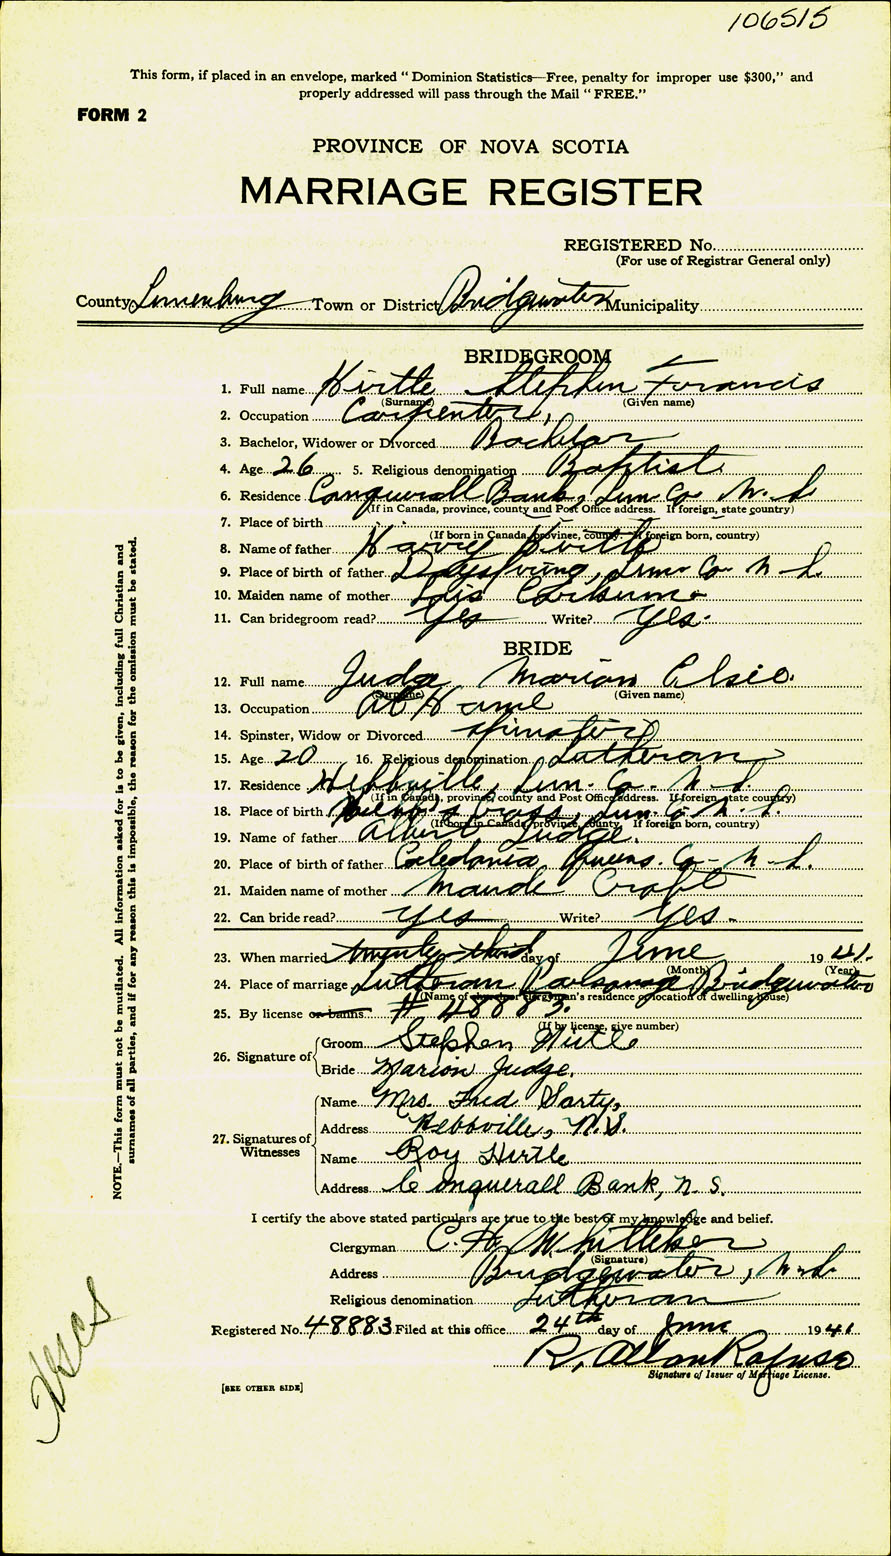 106515
This form, if placed in an envelope, marked "Dominion Statistics—Free, penalty for improper use $300," and
properly addressed will pass through the Mail "FREE."
FORM 2
PROVINCE OF NOVA SCOTIA
MARRIAGE REGISTER
REGISTERED No.
(For use of Registrar General only)
County Lunenburg Town or District Bridgewater Municipality
BRIDEGROOM
1. Full name Hirtle Stephen Francis
(Surname) (Given name)
2. Occupation Carpenter,
3. Bachelor, Widower or Divorced Bachelor
4. Age 26 5. Religious denomination Baptist
6. Residence Conquerall Bank, Lun. Co. N. S.
(If in Canada, province, county and Post Office address. If foreign, state country)
7. Place of birth
(If born in Canada, province, county. If foreign born, country)
8. Name of father Harry Hirtle
9. Place of birth of father Dayspring, Lun. Co. N. S.
10. Maiden name of mother
11. Can bridegroom read? Yes Write? Yes.
BRIDE
12. Full name Judge Marion Elsie.
(Surname) (Given name)
13. Occupation At Home
14. Spinster, Widow or Divorced Spinster
15. Age 20 16. Religious denomination Lutheran
17. Residence Hebbville, Lun. Co. N. S.
(If in Canada, province, county and Post Office address. If foreign, state country)
18. Place of birth Hebb's Cross, Lun. Co. N. S.
(If born in Canada, province, county. If foreign born, country)
19. Name of father Albert Judge.
20. Place of birth of father Caledonia, Queens. Co. N. S.
21. Maiden name of mother Maude Croft
22. Can bride read? Yes Write? Yes.
23. When married twenty-third day of June 1941.
(Month) (Year)
24. Place of marriage Lutheran Parsonage Bridgewater
(Name of church or clergyman's residence or location of dwelling house)
25. By license or banns # 48883.
(If by license, give number)
26. Signature of
Groom Stephen Hirtle
Bride Marion Judge.
27. Signatures of Witnesses
Name Mrs. Fred Sarty,
Address Hebbville, N.S.
Name Roy Hirtle
Address Conquerall Bank, N. S.
I certify the above stated particulars are true to the best of my knowledge and belief.
Clergyman C. H. Whitteker
(Signature)
Address Bridgewater, N. S.
Religious denomination Lutheran
Registered No. 48883 Filed at this office 24th day of June 1941
R. Allan Rafuse
Signature of Issuer of Marriage License.
[SEE OTHER SIDE]
NOTE.—This form must not be mutilated. All information asked for is to be given, including full Christian and
surnames of all parties, and if for any reason this is impossible, the reason for the omission must be stated.